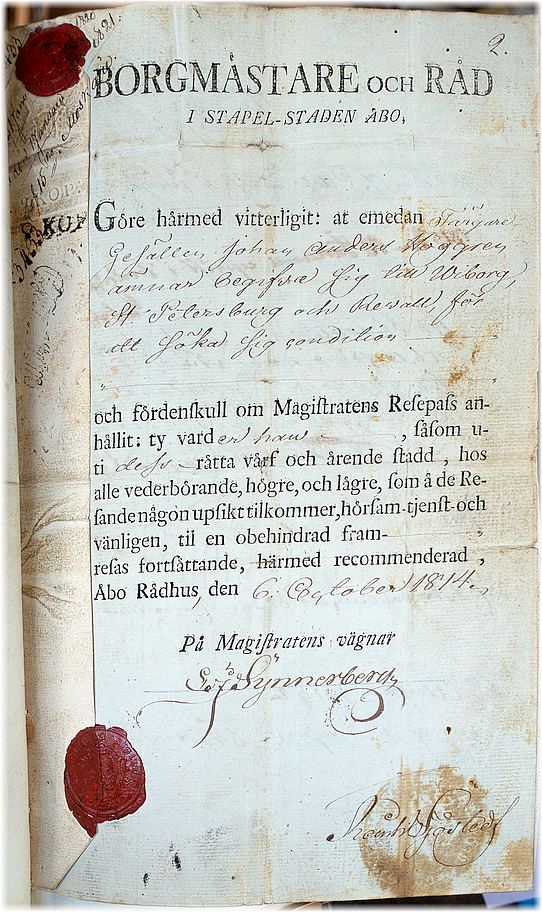 2.
BORGMÅSTARE OCH RÅD
I STAPEL-STADEN ÅBO,
KOP
Göre hårmed vitterligit: at emedan Färgare
Gesällen Johan Anders Höggren
ämnar begifva sig till Wiborg,
St Petersburg och Revall för
att söka sig condition
och fördenskull om Magiſtratens Reſepaſs an-
hållit: ty varder han , ſåſom u-
ti deſs råtta vårf och årende ſtadd , hos
alle vederbörande, högre, och lågre, ſom å de Re-
ſande någon upſikt tilkommer, hörſam-tjenſt-och
vänligen, til en obehindrad fram-
reſas fortſåttande, härmed recommenderad ,
Åbo Rådhus, den 6. October 1814.
På Magiſtratens vägnar
Synnerberg